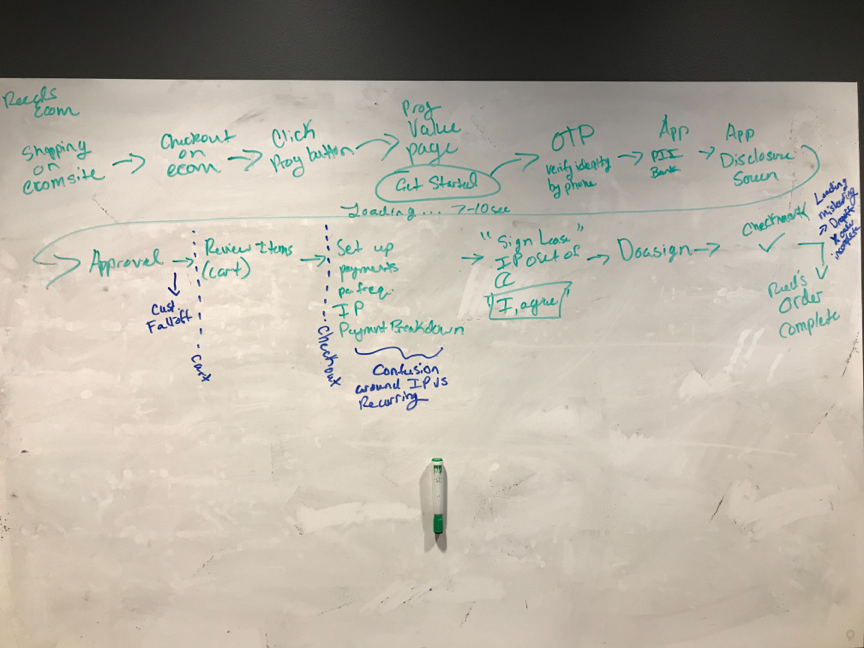 Reeds
Ecom
Shopping
on
ecom site
Checkout
on
ecom
Click
Prog button
Prog
Value
page
Get Started
OTP
verify identity
by phone
App
PII
Bank
App
Disclosure
Screen
Loading... 7-10sec
Approval
Cust.
Falloff
Review Items
(cart)
Cart
Set up
payments
pay freq.
IP
Payment Breakdown
Checkout
Confusion
around IP vs
Recurring
"Sign Lease"
IP out of
CC
"I, agree"
Docusign
Checkmark
Loading
misleading
→ Dropoff
order
incomplete
Reed's
Order
Complete